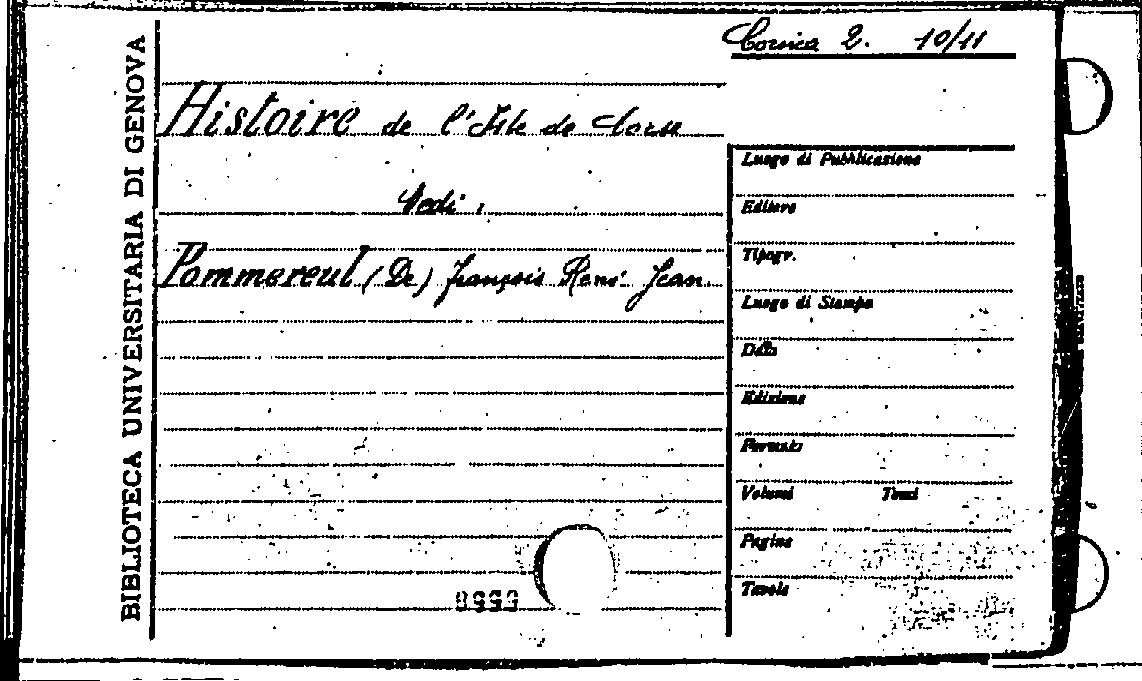 BIBLIOTECA UNIVERSITARIA DI GENOVA
Corsica 2. 10/11
Histoire de l'Isle de Corse
Vedi:
Pommereul (De) François René Jean.
Luogo di Pubblicazione
Editore
Tipogr.
Luogo di Stampa
Data
Edizione
Formato
Volumi Tomi
Pagine
Tavole